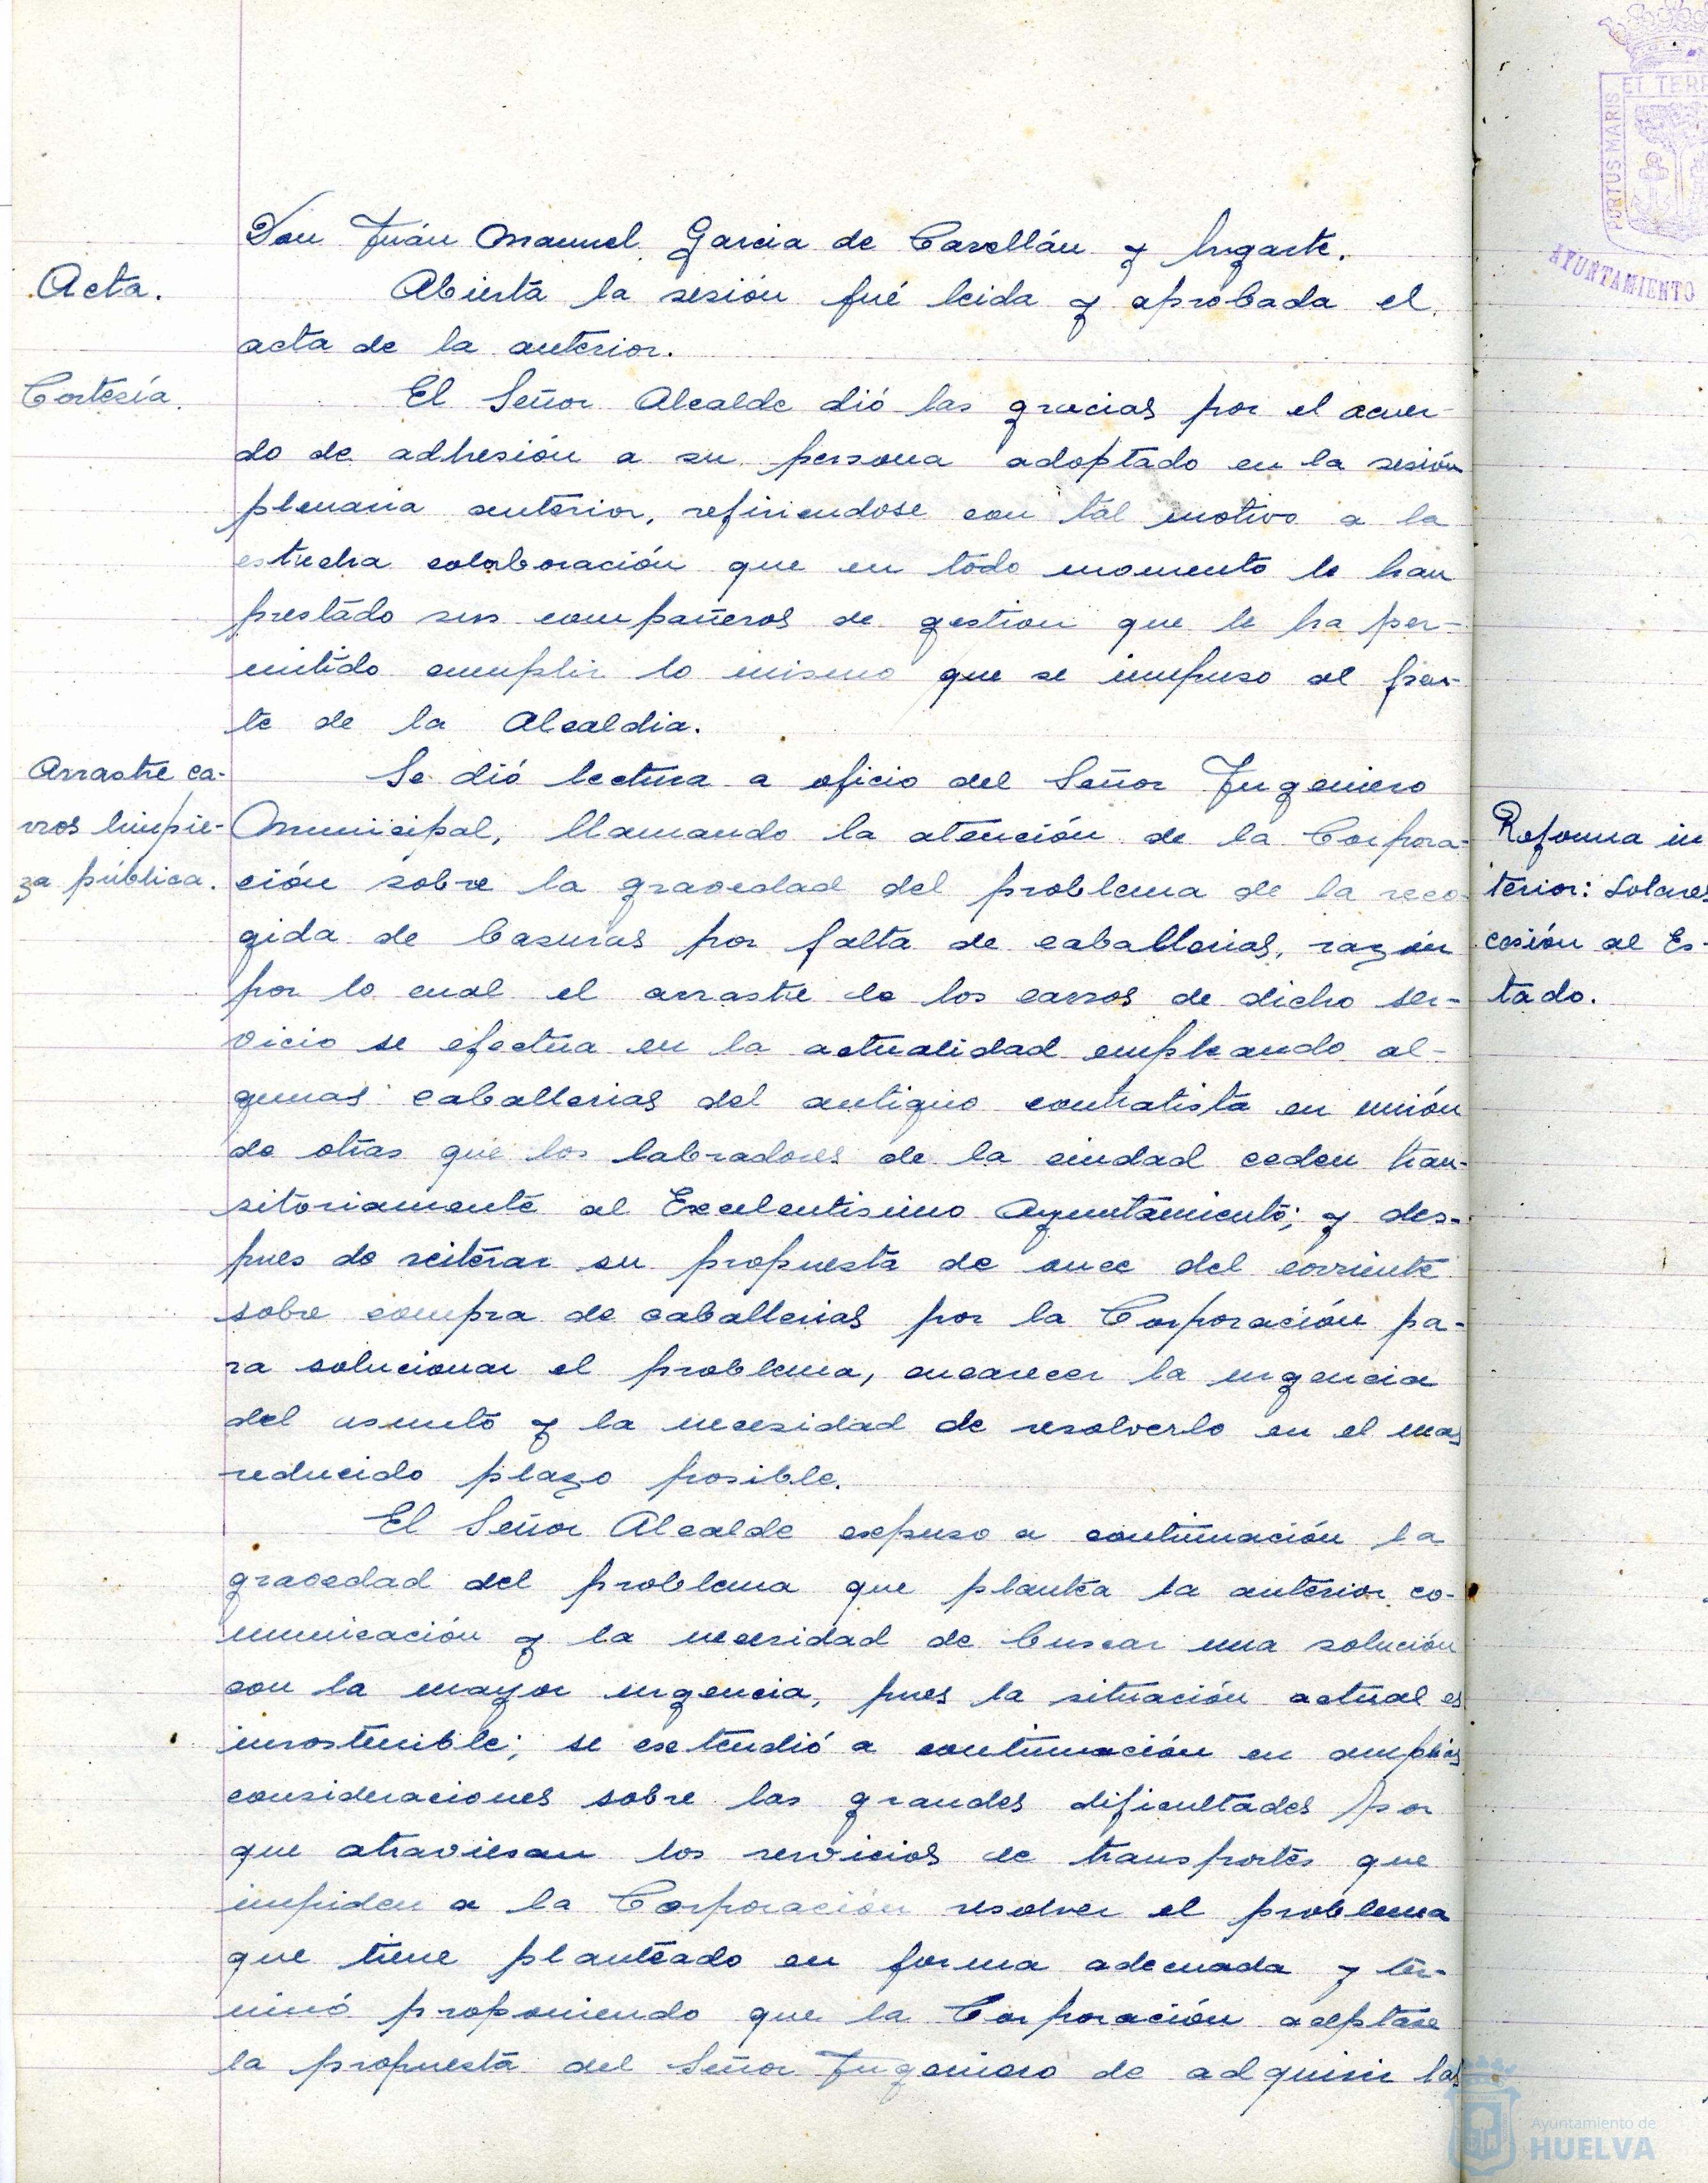 Don Juán Manuel Garcia de Casellán y Iugarte.
Acta.
Abierta la sesión fué leida y aprobada el
acta de la anterior.
Cortesía.
El Señor Alcalde dió las gracias por el acuer-
do de adhesión a su persona adoptado en la sesión
plenaria anterior, refiriendose con tal motivo a la
estrecha colaboración que en todo momento le han
prestado sus compañeros de gestion que le ha per-
mitido cumplir lo mismo que se impuso al fren-
te de la Alcaldia.
Arrastre ca-
rros limpie-
za pública.
Se dió lectura a oficio del Señor Ingeniero
Municipal, llamando la atención de la Corpora-
ción sobre la gravedad del problema de la reco-
gida de basuras por falta de caballerias, razón
por lo cual el arrastre de los carros de dicho ser-
vicio se efectua en la actualidad empleando al-
gunas caballerias del antiguo contratista en unión
de otras que los labradores de la ciudad ceden tran-
sitoriamente al Excelentisimo Ayuntamiento; y des-
pues de reiterar su propuesta de once del corriente
sobre compra de caballerias por la Corporación pa-
ra solucionar el problema, encarecer la urgencia
del asunto y la necesidad de resolverlo en el mas
reducido plazo posible.
El Señor Alcalde expuso a continuación la
gravedad del problema que plantea la anterior co-
municación y la necesidad de buscar una solución
con la mayor urgencia, pues la situación actual es
insostenible; se extendió a continuación en amplias
consideraciones sobre las grandes dificultades por
que atraviesan los servicios de transportes que
impiden a la Corporación resolver el problema
que tiene planteado en forma adecuada y ter-
minó proponiendo que la Corporación aceptase
la propuesta del Señor Ingeniero de adquirir las
Reforma in
terior: Solares
cesión al Es-
tado.
PORTUS MARIS
ET TERR
AYUNTAMIENTO
Ayuntamiento de
HUELVA